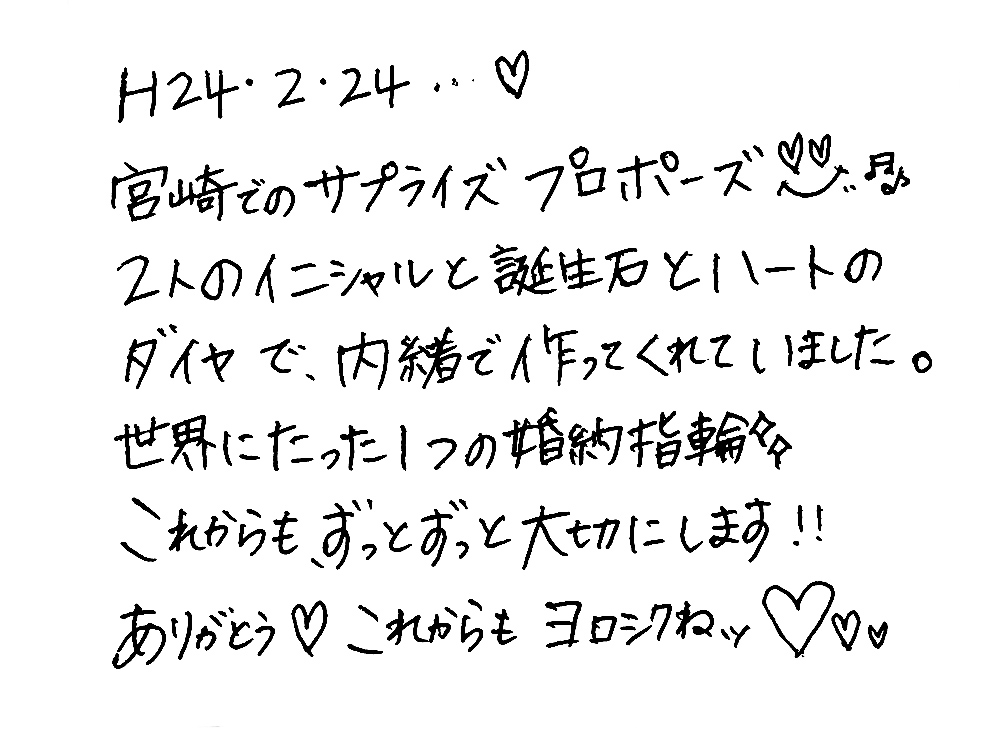 H24・2・24…♡
宮崎でのサプライズプロポーズ♡♡♫
2人のイニシャルと誕生石とハートの
ダイヤで、内緒で作ってくれていました。
世界にたった1つの婚約指輪
これからも、ずっとずっと大切にします!!
ありがとう♡これからもヨロシクねッ♡♡♡